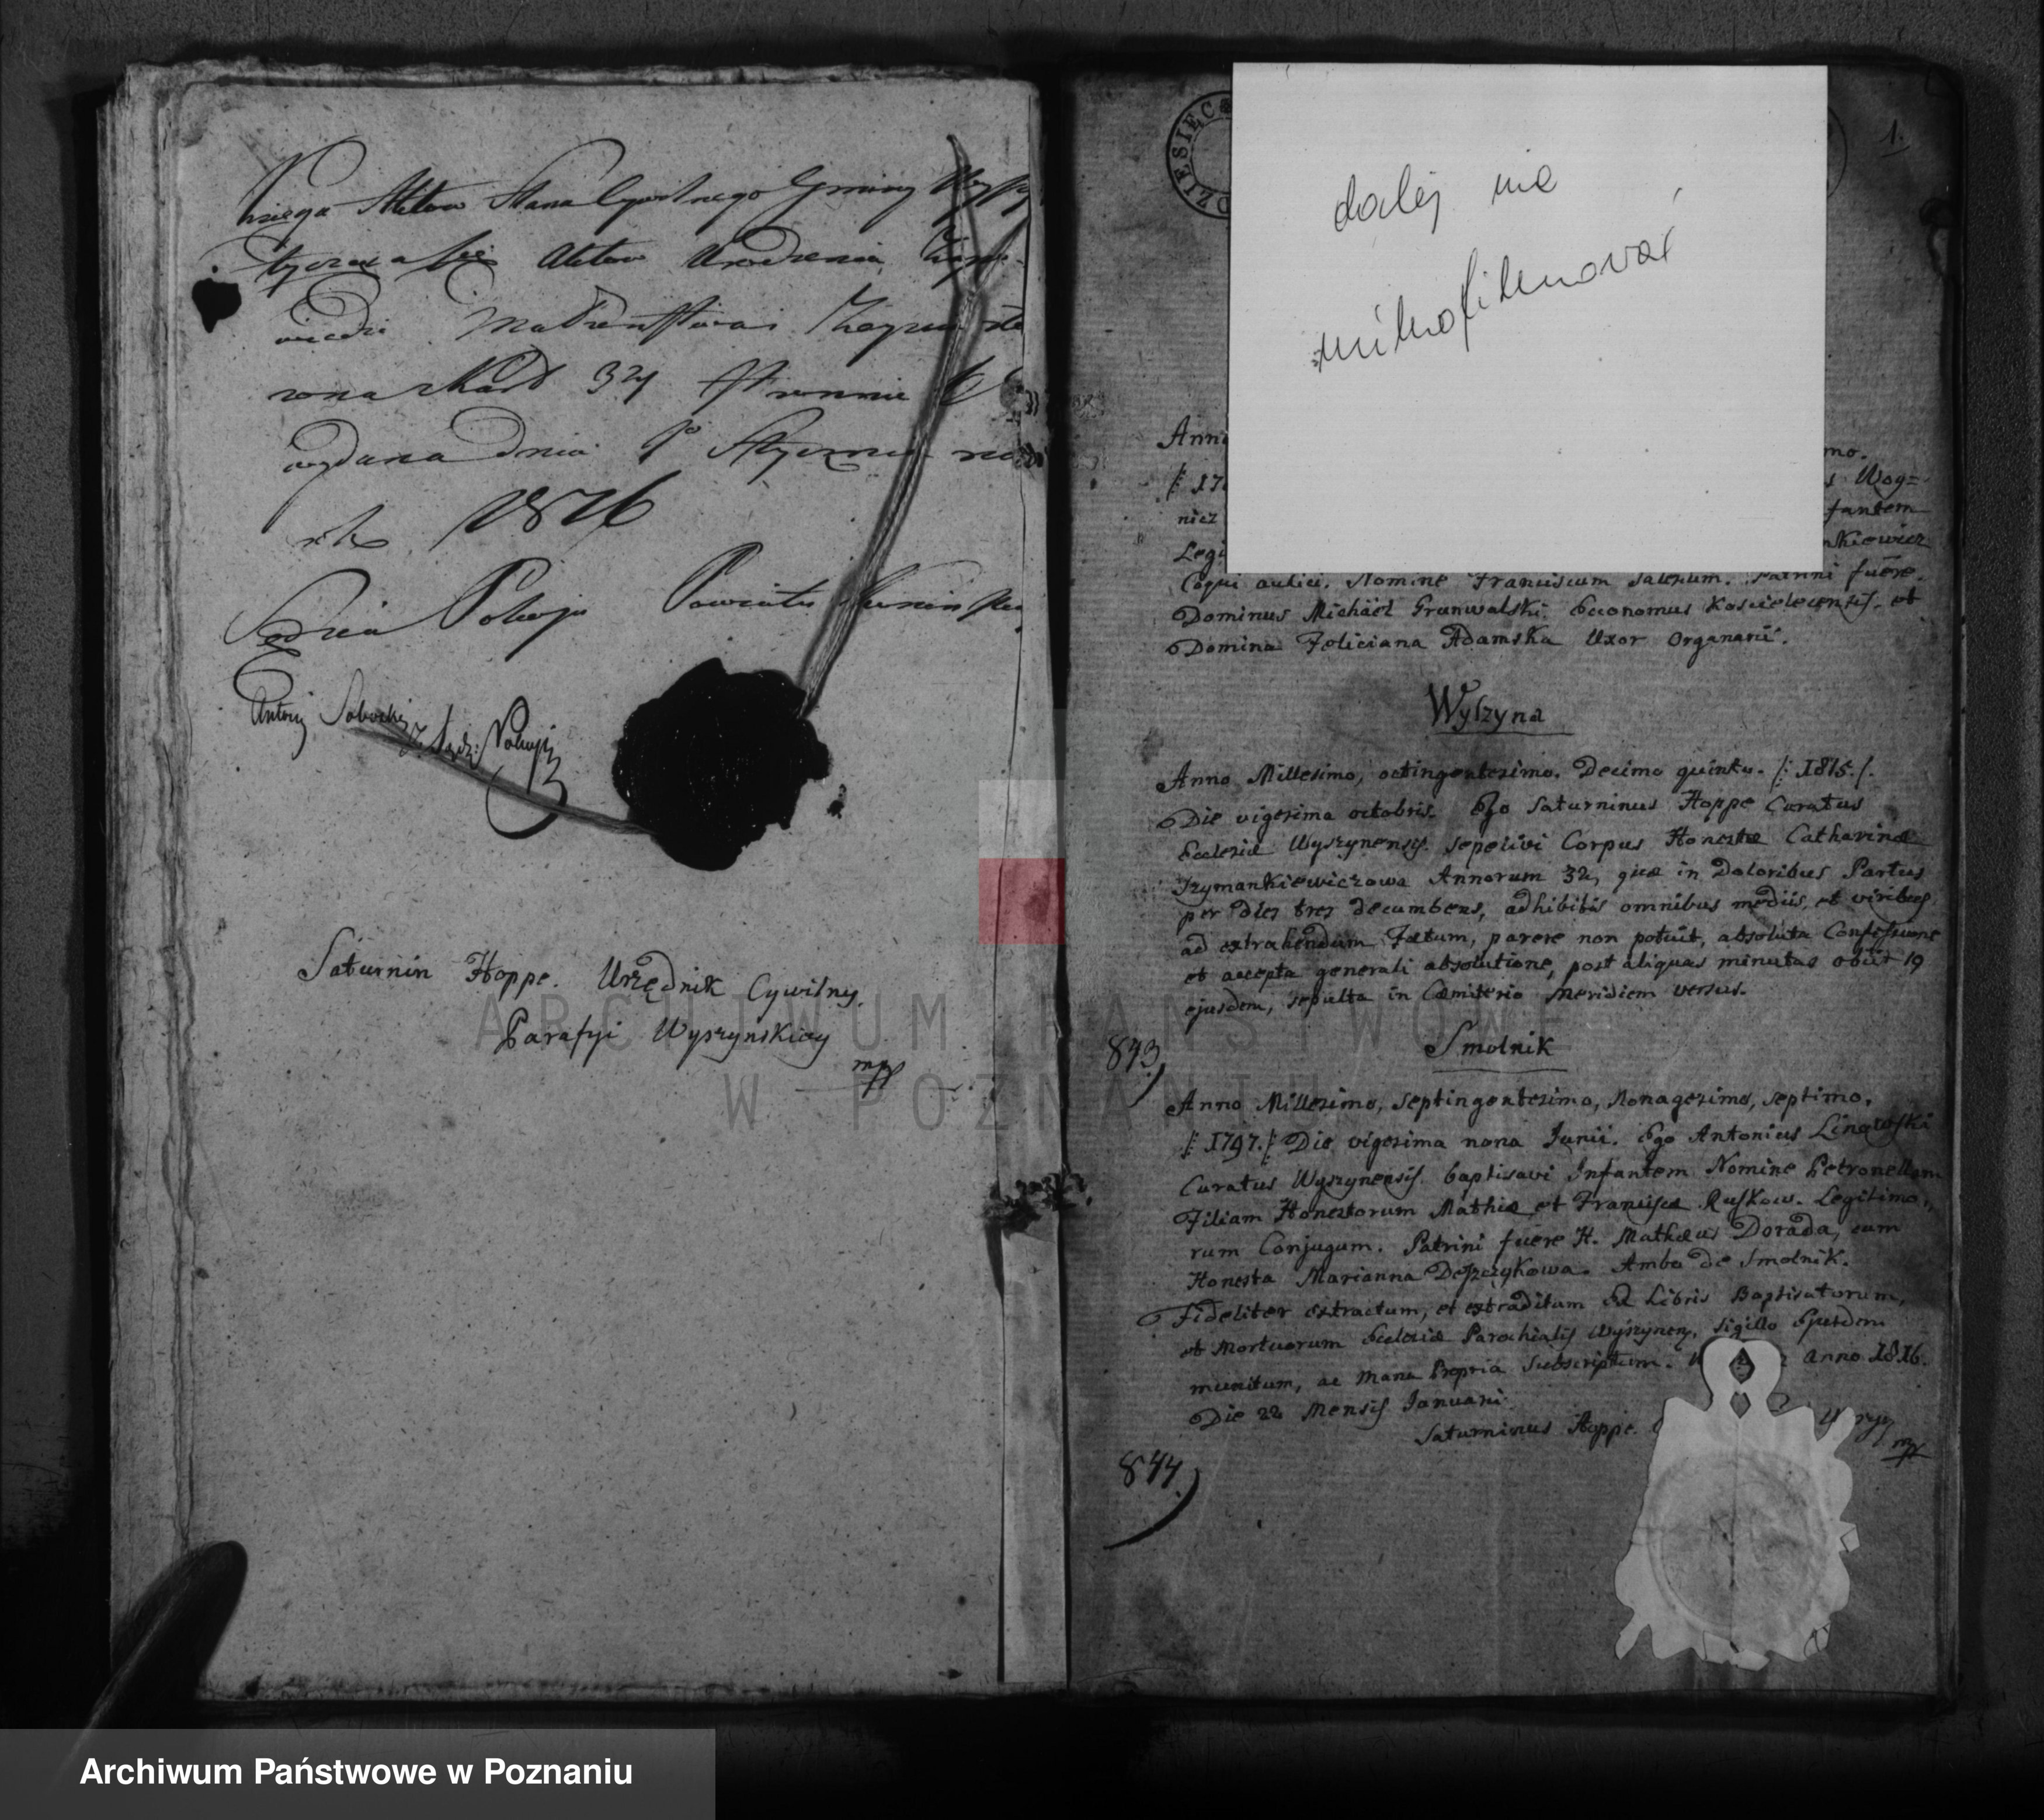 Księga Aktow Stanu Cywilnego Gminy
tycząca się Aktow Urodzenia
wiedzi Małżeństwa i
rowana Kart 34
wydana dnia 1º Stycznia
roku 1816
Sędzia Pokoju Powiatu
Antoni Pokoju
Saturnin Hoppe. Urzędnik Cywilny.
Parafyi Wyszynskiey
mpp
DZIESIĘC
1.
dalej nie
mikrofilmować
Ann mo.
/: 17 s Wog=
nicz fantem
Legi nkiewicz
Coqui aulici. Nomine Franciscum Salesium. Patrini fuere.
Dominus Michael Grunwalski. Economus Koscielecensis. et
Domina Feliciana Adamska Uxor Organarii.
Wyszyna
Anno Millesimo, octingentesimo. Decimo quinto. /: 1815./.
Die vigesima octobris. Ego Saturninus Hoppe Curatus
Ecclesiæ Wyszynensis. sepelivi Corpus Honestæ Catharinæ
Szymankiewiczowa Annorum 32, quæ in Doloribus Partus
per dies tres decumbens, adhibitis omnibus mediis, et viribus
ad extrahendum Fœtum, parere non potuit, absoluta Confessione
et accepta generali absolutione, post aliquas minutas obiit 19
ejusdem, sepulta in Cæmiterio Meridiem versus.
843)
Smolnik
Anno Millesimo, Septingentesimo, Nonagesimo, septimo.
/: 1797./: Die vigesima nona Junii. Ego Antonius Linowski
Curatus Wyszynensis. baptisavi Infantem Nomine Petronellam
Filiam Honestorum Mathiæ et Franciscæ Ruskow. Legitimo.
rum Conjugum. Patrini fuere H. Mathæus Dorada, cum
Honesta Marianna Deszczykowa. Ambo de Smolnik.
Fideliter extractum, et extraditum Ex Libris Baptisatorum,
et Mortuorum Ecclesiæ Parochialis Wyszynen, Sigillo Ejusdem
munitum, ac Manu Propria Subscriptum. Anno 1816.
Die 22 Mensis Januarii
Saturninus Hoppe. Wyszy
mpp
844.)
ARCHIWUM PAŃSTWOWE
W POZNANIU
Archiwum Państwowe w Poznaniu